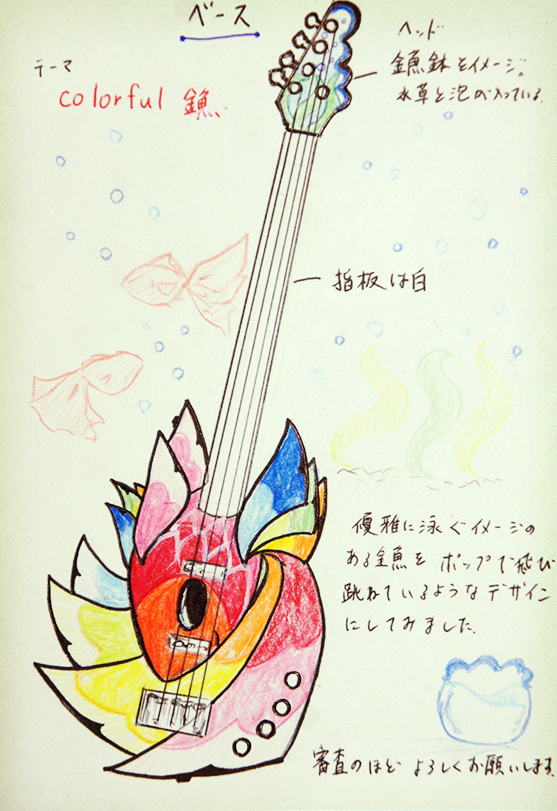 ベース
テーマ
colorful 金魚
ヘッド
金魚鉢をイメージ。
水草と泡が入っている。
指板は白
優雅に泳ぐイメージの
ある金魚を ポップで飛び
跳ねているようなデザイン
にしてみました。
審査のほど よろしくお願いします。